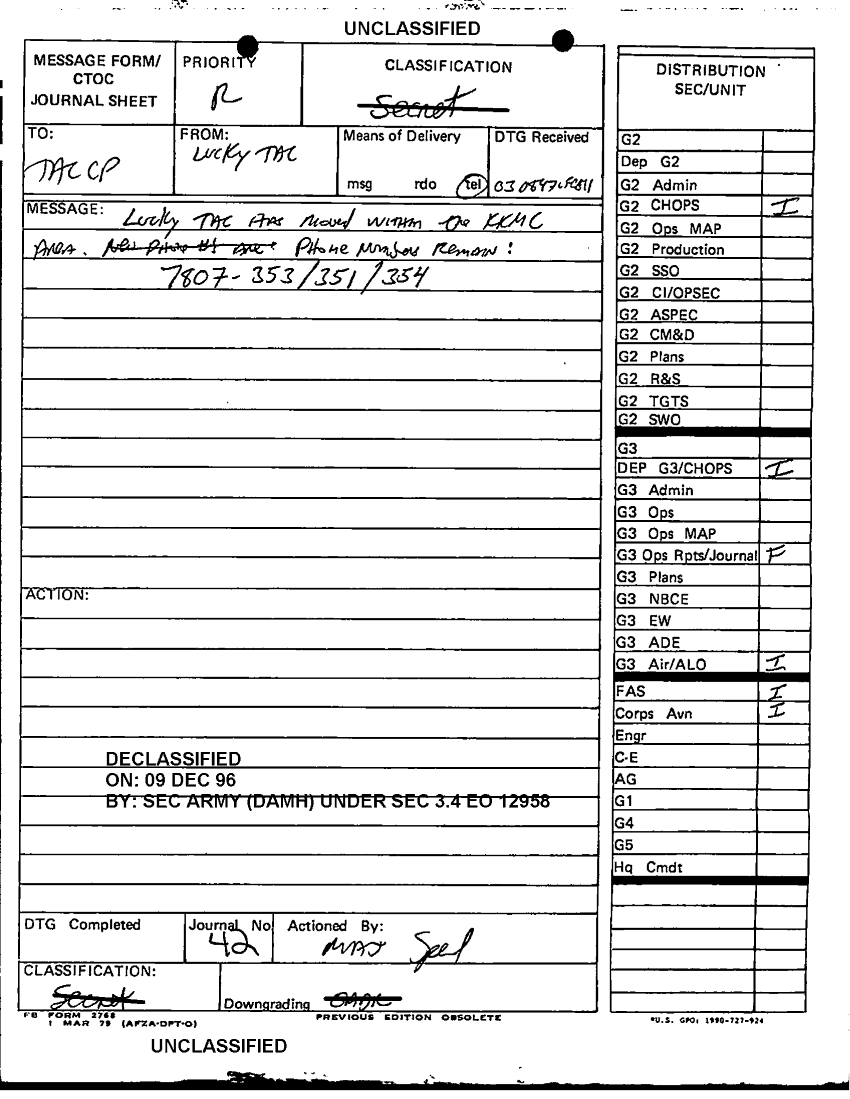 UNCLASSIFIED
MESSAGE FORM/
CTOC
JOURNAL SHEET
PRIORITY
R
CLASSIFICATION
Secret
TO:
TAC CP
FROM:
Lucky TAC
Means of Delivery
msg rdo tel
DTG Received
MESSAGE: Lucky TAC has moved within the KKMC
Area. Phone Numbers Remain:
7807-353/351/354
ACTION:
DECLASSIFIED
ON: 09 DEC 96
BY: SEC ARMY (DAMH) UNDER SEC 3.4 EO 12958
DTG Completed
Journal No
42
Actioned By:
MAJ
CLASSIFICATION:
Secret
Downgrading OADR
FB FORM 2768
1 MAR 79 (AFZA-DPT-O)
PREVIOUS EDITION OBSOLETE
UNCLASSIFIED
DISTRIBUTION
SEC/UNIT
G2
Dep G2
G2 Admin
G2 CHOPS I
G2 Ops MAP
G2 Production
G2 SSO
G2 CI/OPSEC
G2 ASPEC
G2 CM&D
G2 Plans
G2 R&S
G2 TGTS
G2 SWO
G3
DEP G3/CHOPS I
G3 Admin
G3 Ops
G3 Ops MAP
G3 Ops Rpts/Journal F
G3 Plans
G3 NBCE
G3 EW
G3 ADE
G3 Air/ALO I
FAS I
Corps Avn I
Engr
C-E
AG
G1
G4
G5
Hq Cmdt
*U.S. GPO: 1990-727-924